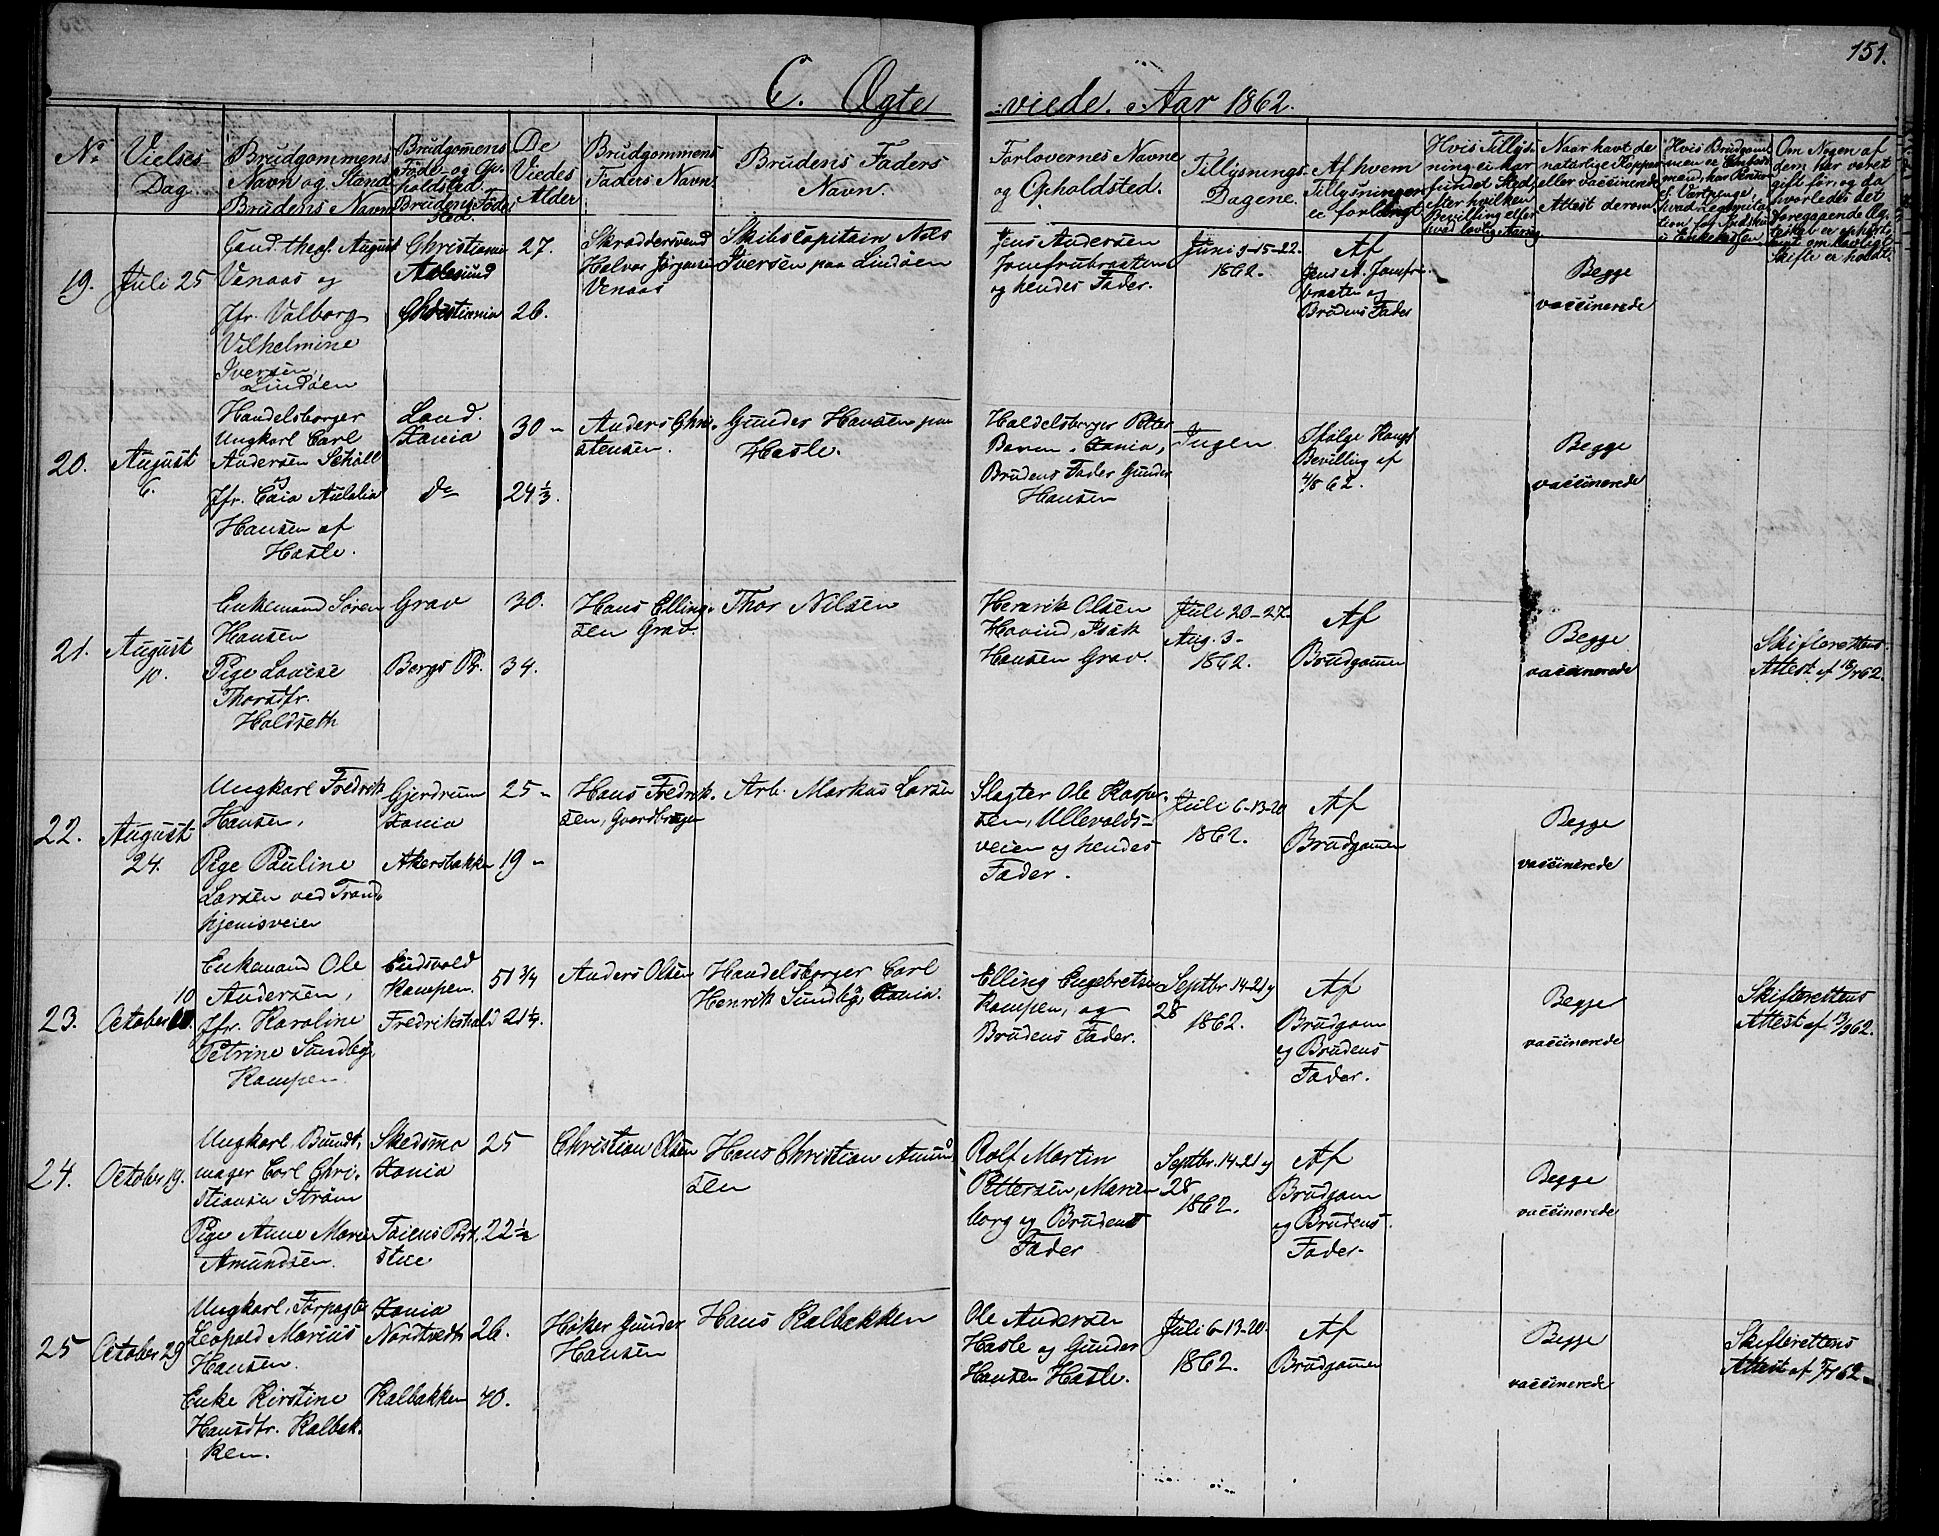 151.
C. Ægte viede. Aar 1862.
No
Vielses
Dag.
Brudgommens
Navn og Stand
Brudens Navn
Brudgomens
Føde- og Op-
holdsted.
Brudens Føde
Sted.
De
Viedes
Alder
Brudgommens
Faders Navn.
Brudens Faders
Navn.
Forlovernes Navne
og Opholdsted.
Tillysnings
Dagene.
Af hvem
Tillysningen
er forlangt
Hvis Tillys-
ning ei har
fundet Sted,
efter hvilken
Bevilling eller
hvad lovlig Aarsag
Naar havt de
natürlige Kopper
eller vaccinerede
Attest derom.
Hvis Brudgom-
men er
Om Nogen af
dem har været
gift før, og da
hvorledes det
foregaaende Æg-
teskab er ophørt,
samt om lovligt
Skifte er holdt.
19.
Juli 25
Cand. theol. August
Venaas og
Jfr. Valborg
Vilhelmine
Iversen,
Lindøen
Christiania
Aalesund
Christiania
27.
26.
Skræddersvend
Halvor Jørgensen
Venaas
Skibscapitain Nils
Iversen paa Lindøen
Jens Andersen
Jomfrubraaten
og hendes Fader.
Juni 9-15-22.
1862.
Af
Jens A. Jomfru-
braaten og
Brudens Fader
Begge
vaccinerede
20.
August
6.
Handelsborger
Ungkarl Carl
Andersen Schøll
og
Jfr. Caia Aulalia
Hansen af
Hasle.
Land
Xania
do
30 -
24 1/3.
Anders Chri-
stensen.
Gunder Hansen paa
Hasle.
Haldelsborger Petter
Xania,
Brudens Fader Gunder
Hansen
Ingen
Ifølge Kongl
Bevilling af
4/8 62.
Begge
vaccinerede
21.
August
10.
Enkemand Søren
Hansen
Pige Lovise
Thorsdtr.
Holdseth
Grav
Borgs Pr.
30.
34.
Hans Elling-
sen Grav.
Thor Nilsen
Henrik Olsen
Hovind, Isak
Hansen Grav.
Juli 20-27-
Aug. 3-
1862.
Af
Brudgomen
Begge
vaccinerede
Skifterettens
Attest af 18/7 62.
22.
August
24.
Ungkarl Fredrik
Hansen,
Pige Pauline
Larsen ved Trond-
hjemsveien
Gjerdrum
Xania
Akersbakken
25 -
19 -
Hans Fredrik-
sen, Gaardbruger
Arb. Markus Larsen
Slagter Ole Kasper-
sen, Ullevolds-
veien og hendes
Fader.
Juli 6-13-20
1862.
Af
Brudgomen
Begge
vaccinerede
23.
October 10.
10
Enkemand Ole
Andersen,
Jfr. Karoline
Petrine Sundby,
Kampen.
Eidsvold
Kampen.
Fredrikshald
51 3/4
21 1/4.
Anders Olsen
Handelsborger Carl
Henrik Sundby, Xania.
Elling Engebretsen
Kampen, og
Brudens Fader.
Septbr. 14-21 og
28
1862.
Af
Brudgom
og Brudens
Fader.
Begge
vaccinerede
Skifterettens
Attest af 13/9 62.
24.
October 19.
Ungkarl, Bundt-
mager Carl Chri-
stiansen Strøm
Pige Anne Marie
Amundsen.
Skedsmo
Xania
Tøiens Port-
stue
25
22 1/2
Christian Olsen
Hans Christian Amund-
sen
Rolf Martin
Pettersen, Marien-
borg og Brudens
Fader
Septbr. 14-21 og
28
1862.
Af
Brudgom
og Brudens
Fader.
Begge
vaccinerede
25
October 29
Ungkarl, Forpagter
Leopold Marius
Hansen.
Enke Kirstine
Hansdtr. Kalbak-
ken.
Xania
Nordtvedt
Kalbakken
26.
40.
Høker Gunder
Hansen
Hans Kalbakken
Ole Andersen
Hasle og Gunder
Hansen Hasle.
Juli 6-13-20.
1862.
Af
Brudgomen
Begge
vaccinerede
Skifterettens
Attest af 5/7 62.